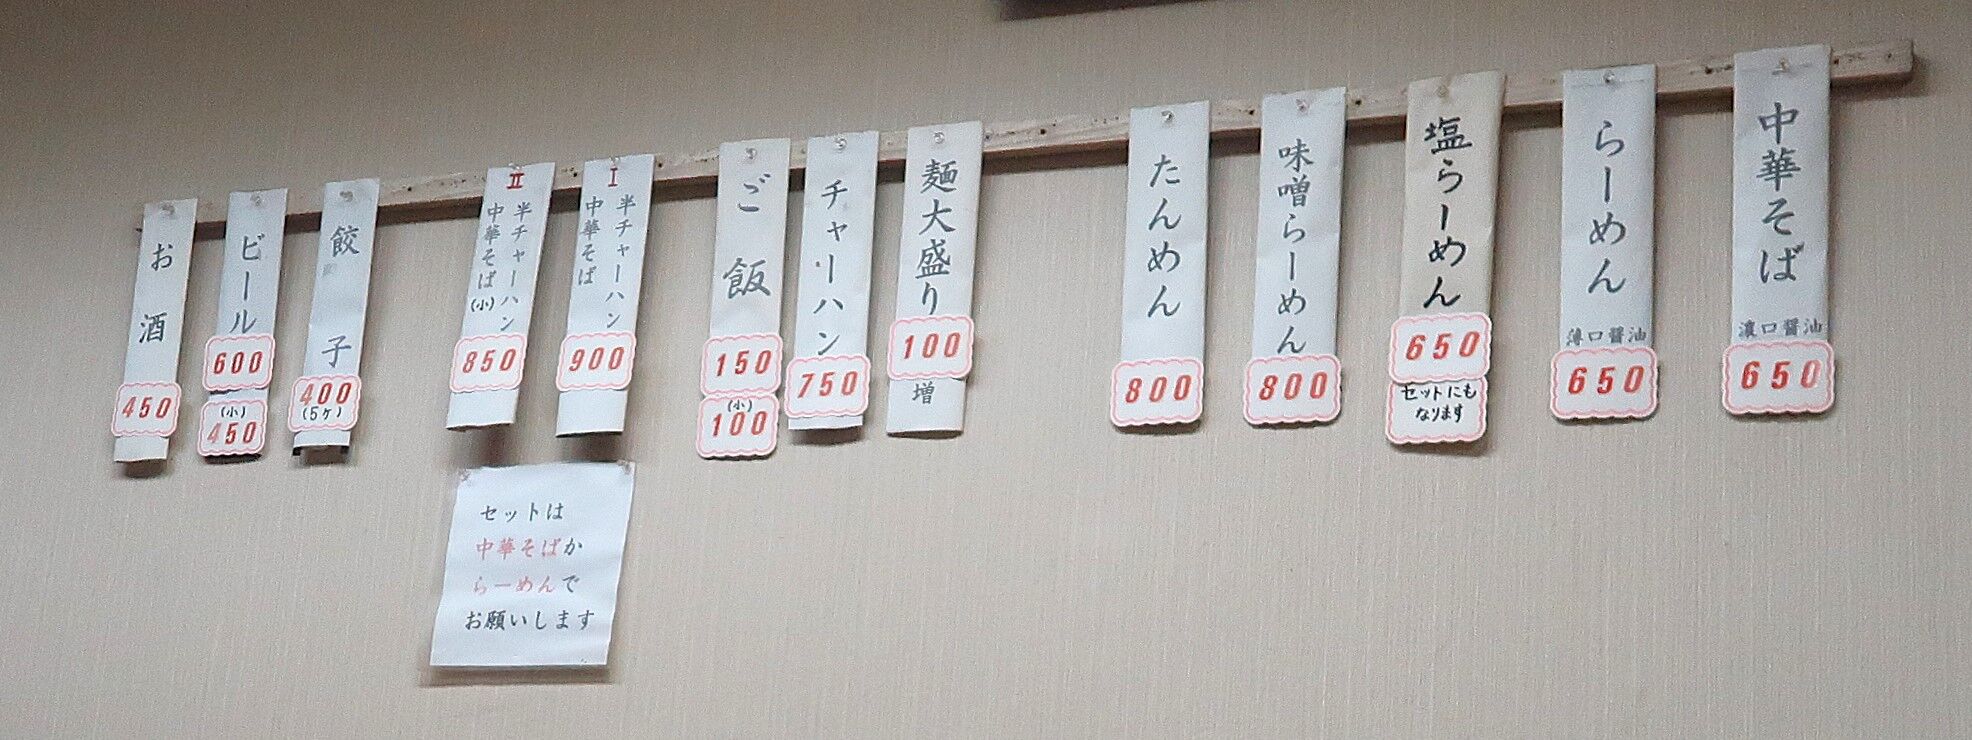 中華そば
濃口醤油
650
らーめん
薄口醤油
650
塩らーめん
650
セットにも
なります
味噌らーめん
800
たんめん
800
麺大盛り
100
増
チャーハン
750
ご飯
150
(小)
100
I
半チャーハン
中華そば
900
II
半チャーハン
中華そば(小)
850
セットは
中華そばか
らーめんで
お願いします
餃子
400
(5ヶ)
ビール
600
(小)
450
お酒
450